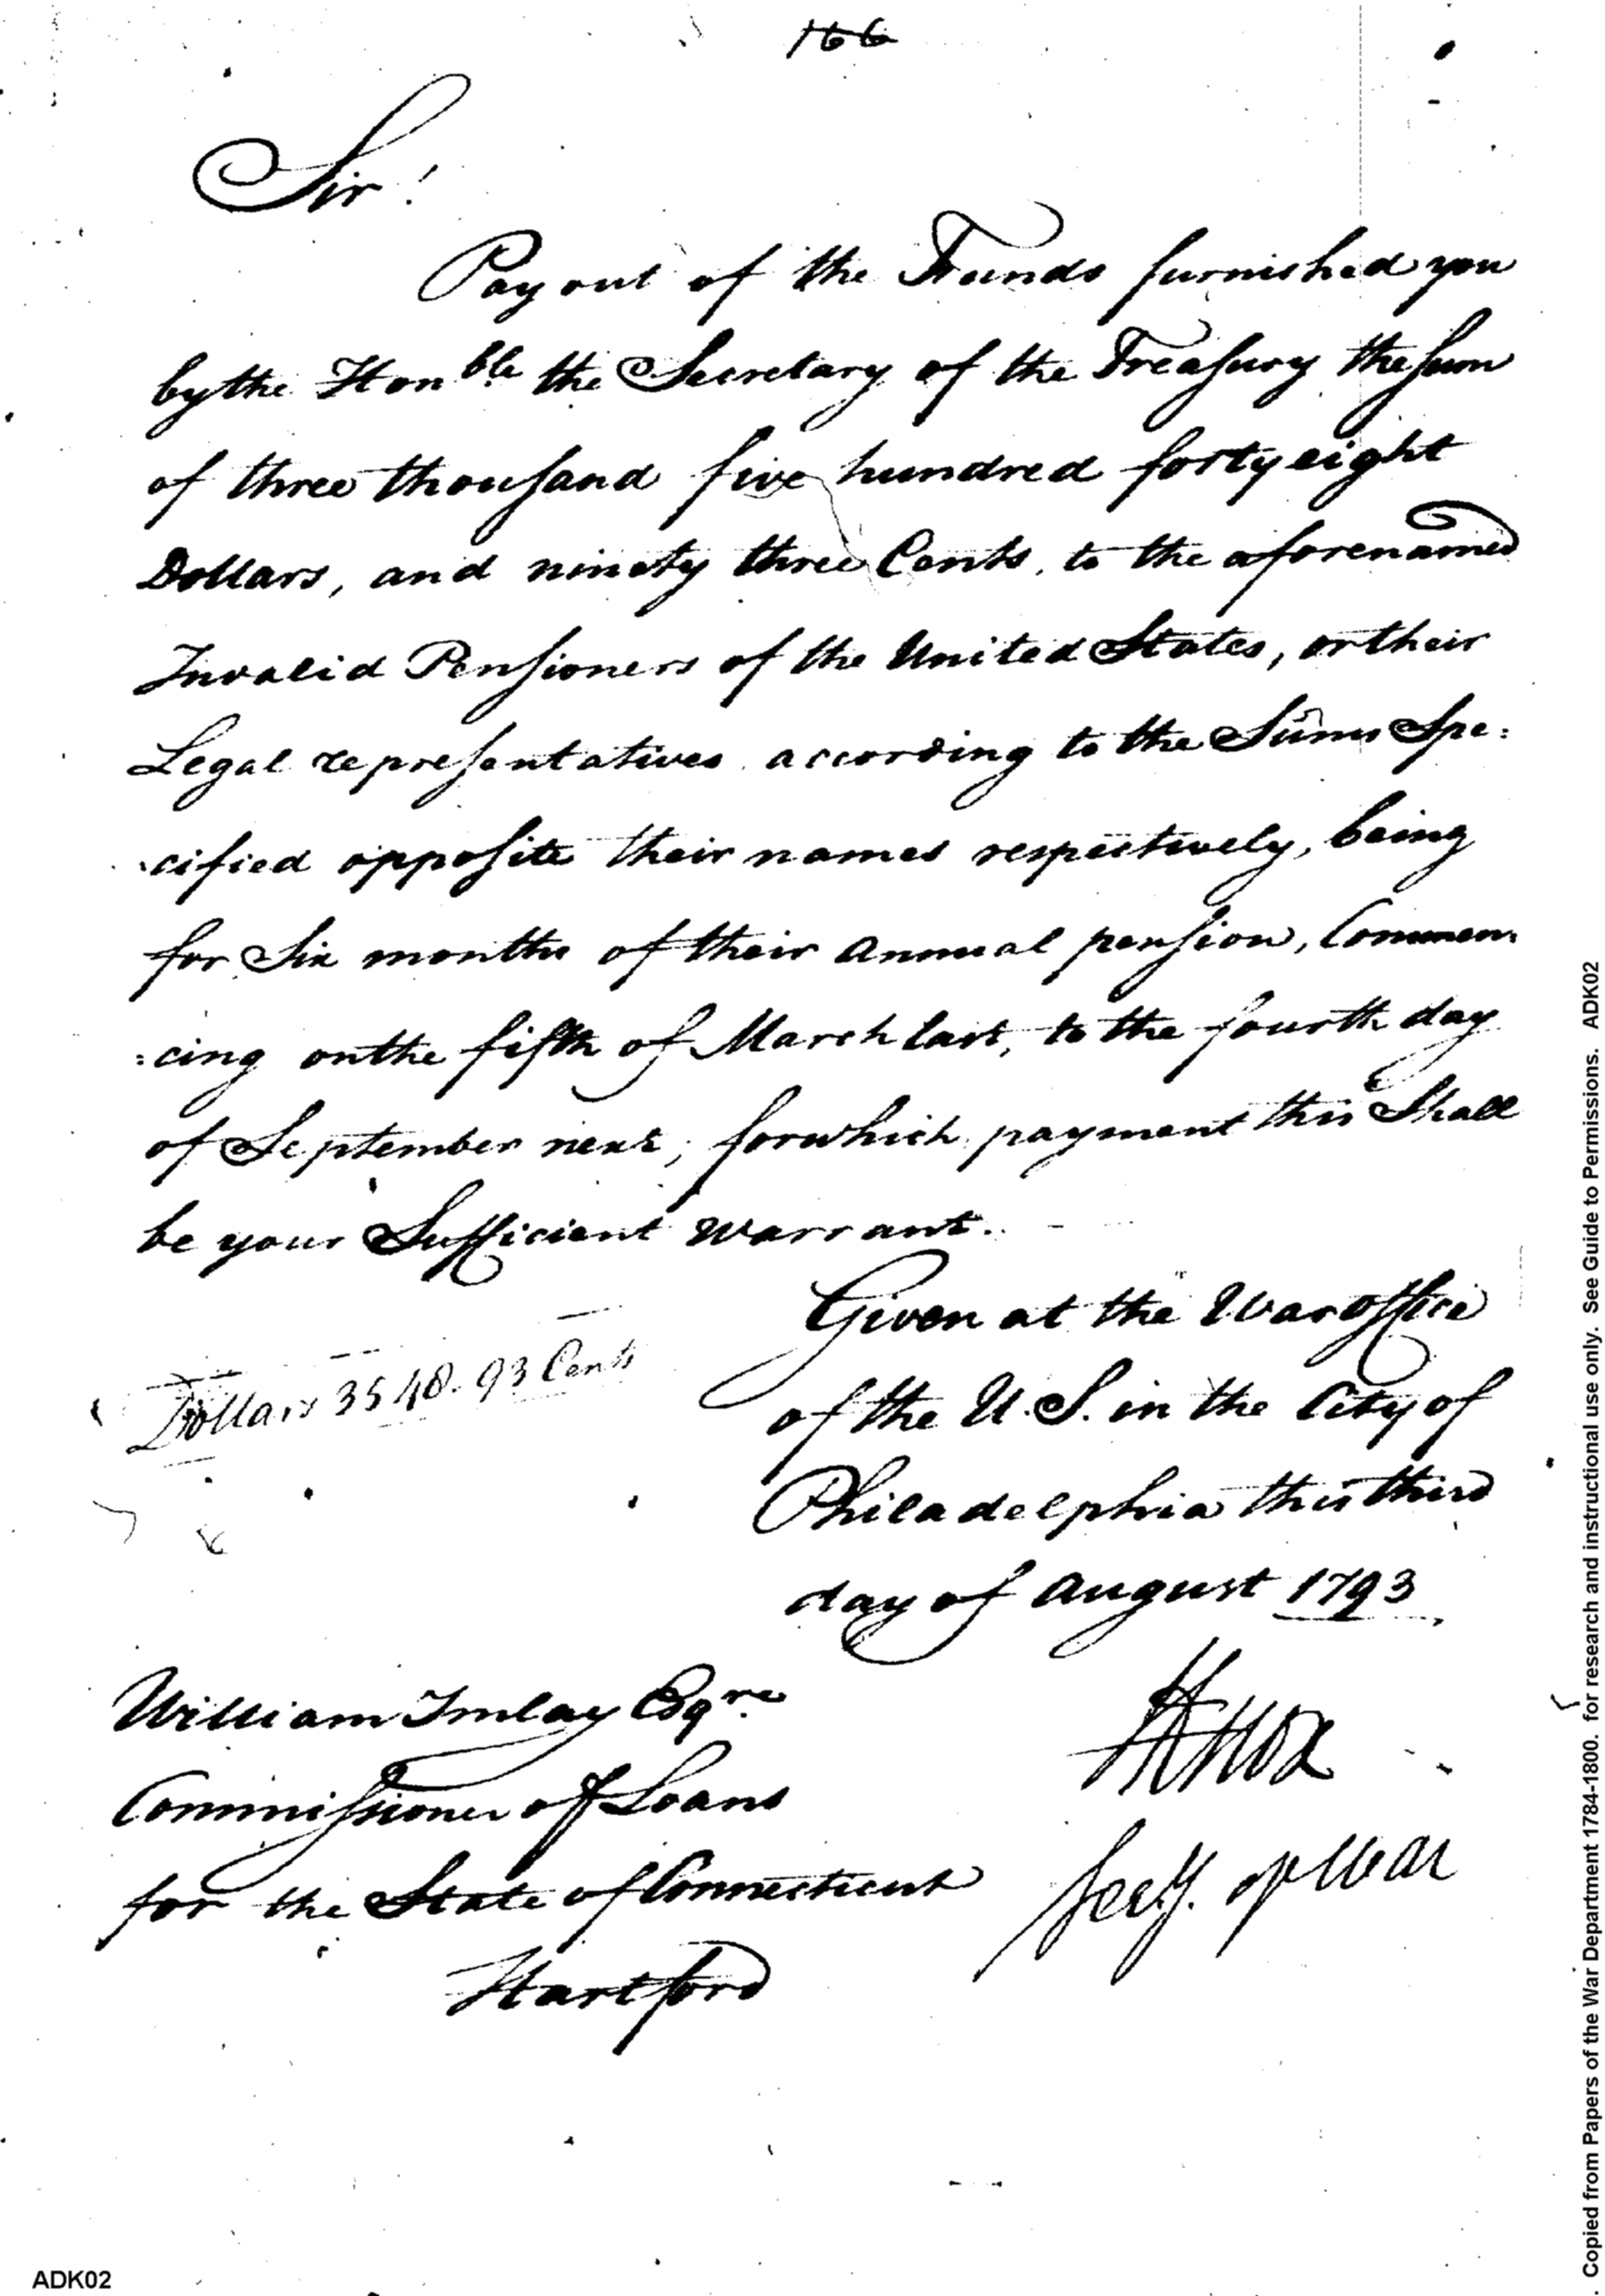 166
Sir!
Pay out of the Funds furnished you
by the Honble the Secretary of the Treasury the sum
of three thousand five hundred forty eight
Dollars, and ninety three Cents, to the aforenamed
Invalid Pensioners of the United States, or their
Legal representatives according to the Sums Spe:
:cified opposite their names respectively, being
for Six months of their Annual pension, Commen:
:cing on the fifth of March last, to the fourth day
of September next, for which payment this Shall
be your Sufficient Warrant.
Given at the War Office
of the U.S. in the City of
Philadelphia this third
day of August 1793
Dollars 3548.93 Cents
William Imlay Esqre
Commissioner of Loans
for the State of Connecticut
Hartford
HKnox
Secy. of War
Copied from Papers of the War Department 1784-1800. for research and instructional use only. See Guide to Permissions. ADK02
ADK02